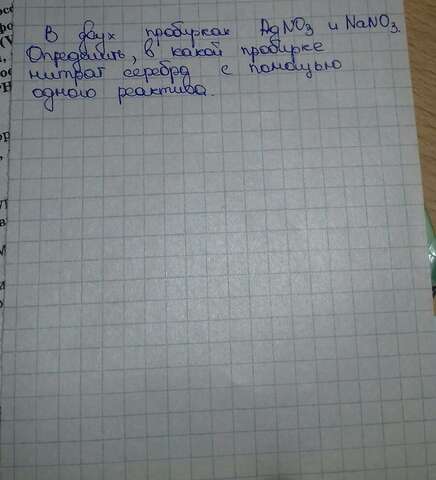 В двух пробирках AgNO3 и NaNO3.
Определить, в какой пробирке
нитрат серебра с помощью
одного реактива.